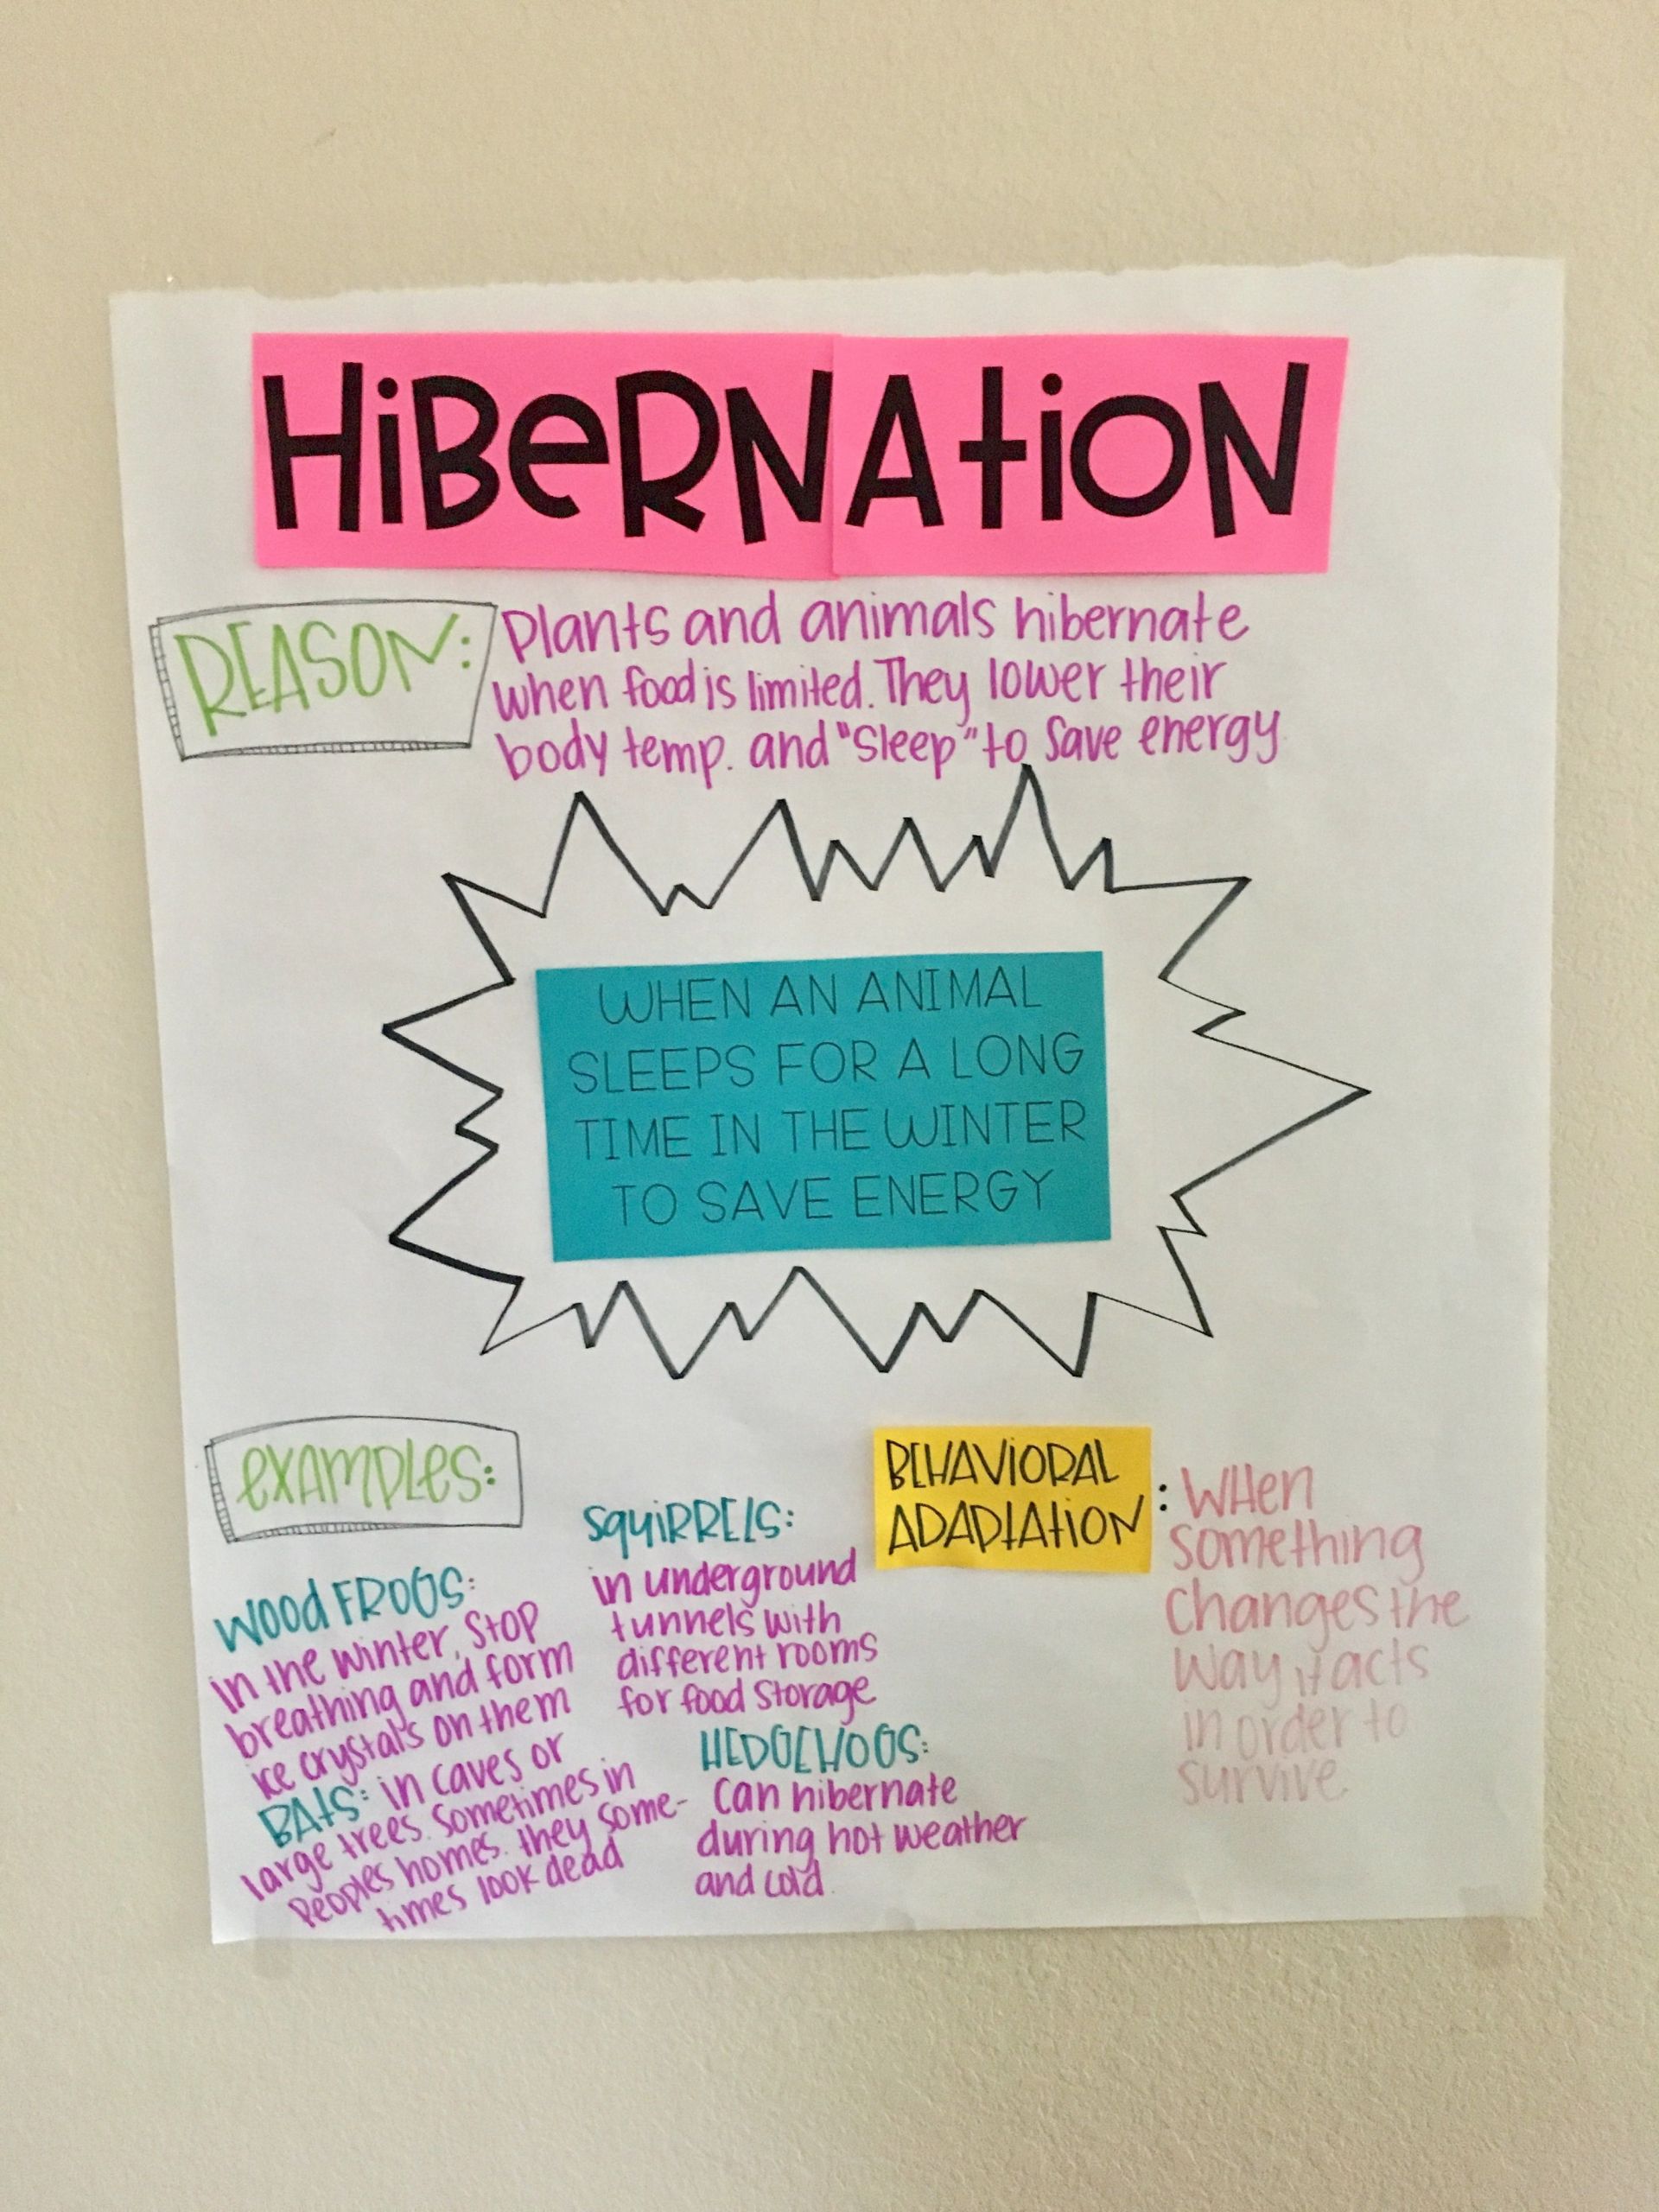 HiBeRNAtioN
REASON:
Plants and animals hibernate
when food is limited. They lower their
body temp. and "sleep" to save energy
WHEN AN ANIMAL
SLEEPS FOR A LONG
TIME IN THE WINTER
TO SAVE ENERGY
eXAMPLes:
WOOd FROGS:
in the winter, stop
breathing and form
ice crystals on them
BAtS: in caves or
large trees. Sometimes in
peoples homes. they some-
times look dead
SQUiRRELS:
in underground
tunnels with
different rooms
for food storage
HEDGEHOGS:
Can hibernate
during hot weather
and cold.
BEHAVIORAL
ADAPtAtiON
: WHen
something
changes the
way it acts
in order to
survive.